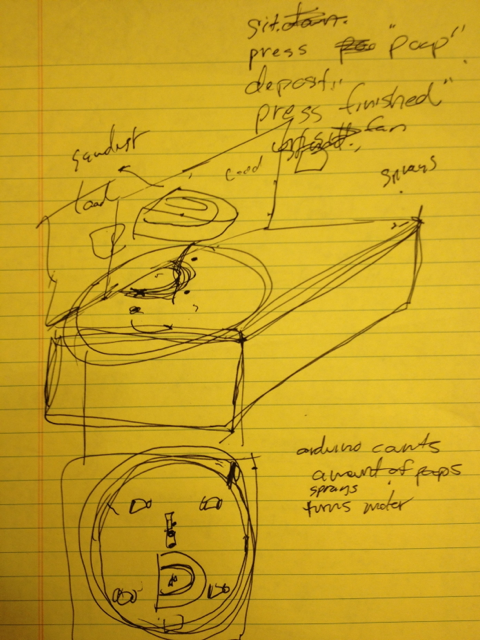 sit.
press "poop"
deposit..
press finished"
fan
sawdust
load
sprays
arduino counts
amount of poops
sprays
turns motor